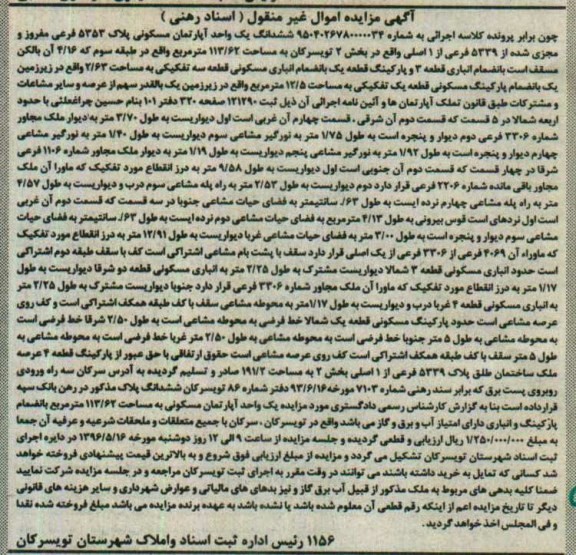 آگهی مزایده اموال غیر منقول ( اسناد رهنی )
چون برابر پرونده کلاسه اجرائی به شماره ۹۵۰۴۰۲۶۷۸۰۰۰۰۳۴ ششدانگ یک واحد آپارتمان مسکونی پلاک ۵۳۵۳ فرعی مفروز و
مجزی شده از ۵۳۳۹ فرعی از ۱ اصلی واقع در بخش ۲ تویسرکان به مساحت ۱۱۳/۶۲ مترمربع واقع در طبقه سوم که ۴/۱۶ آن بالکن
مسقف است بانضمام انباری قطعه ۳ و پارکینگ قطعه یک بانضمام انباری مسکونی قطعه سه تفکیکی به مساحت ۲/۶۳ واقع در زیرزمین
یک بانضمام پارکینگ مسکونی قطعه یک تفکیکی به مساحت ۱۲/۵ مترمربع واقع در زیرزمین یک بالقدر سهم از عرصه و سایر مشاعات
و مشترکات طبق قانون تملک آپارتمان ها و آئین نامه اجرائی آن ذیل ثبت ۱۲۱۲۹۰ صفحه ۳۲۰ دفتر ۱۰۱ بنام حسین چراغعلئی با حدود
اربعه شمالا در ۵ قسمت که قسمت دوم آن شرقی ، قسمت چهارم آن غربی است اول دیواریست به طول ۳/۷۰ متر به دیوار ملک مجاور
شماره ۳۳۰۶ فرعی دوم دیوار و پنجره است به طول ۱/۷۵ متر به نورگیر مشاعی سوم دیواریست به طول ۱/۴۰ متر به نورگیر مشاعی
چهارم دیوار و پنجره است به طول ۱/۹۲ متر به نورگیر مشاعی پنجم دیواریست به طول ۱/۱۹ متر به دیوار ملک مجاور شماره ۱۱۰۶ فرعی
شرقا در چهار قسمت که قسمت دوم آن جنوبی است اول دیواریست به طول ۹/۵۸ متر به درز انقطاع مورد تفکیک که ماورا آن ملک
مجاور باقی مانده شماره ۲۲۰۶ فرعی قرار دارد دوم دیواریست به طول ۲/۵۳ متر به راه پله مشاعی سوم درب و دیواریست به طول ۴/۵۷
متر به راه پله مشاعی چهارم نرده ایست به طول ۶۳/. سانتیمتر به فضای حیات مشاعی جنوبا در سه قسمت که قسمت دوم آن غربی
است اول نرده‌های است قوس بیرونی به طول ۴/۱۳ مترمربع به فضای حیات مشاعی دوم نرده ایست به طول ۶۳/. سانتیمتر به فضای حیات
مشاعی سوم دیوار و پنجره است به طول ۳/۰۰ متر به فضای حیات مشاعی غربا دیواریست به طول ۱۲/۹۱ متر به درز انقطاع مورد تفکیک
که ماوراء آن ۴۰۶۹ فرعی از ۳۳۰۶ فرعی از یک اصلی قرار دارد سقف با پشت بام مشاعی اشتراکی است کف با سقف طبقه دوم اشتراکی
است حدود انباری مسکونی قطعه ۳ شمالا دیواریست مشترک به طول ۲/۲۵ متر به انباری مسکونی قطعه دو شرقا دیواریست به طول
۱/۱۷ متر به درز انقطاع مورد تفکیک که ماورا آن ملک مجاور شماره ۳۳۰۶ فرعی قرار دارد جنوبا دیواریست مشترک به طول ۲/۲۵ متر
به انباری مسکونی قطعه ۴ غربا درب و دیواریست به طول ۱/۱۷ متر به محوطه مشاعی سقف با کف طبقه همکف اشتراکی است و کف روی
عرصه مشاعی است حدود پارکینگ مسکونی قطعه یک شمالا خط فرضی به محوطه مشاعی است به طول ۲/۵۰ شرقا خط فرضی است
به محوطه مشاعی به طول ۵ متر جنوبا خط فرضی است به محوطه مشاعی به طول ۲/۵۰ متر غربا خط فرضی است به محوطه مشاعی به
طول ۵ متر سقف با کف طبقه همکف اشتراکی است کف روی عرصه مشاعی است حقوق ارتفاقی با حق عبور از پارکینگ قطعه ۴ عرصه
ملک ساختمان طلق پلاک ۵۳۳۹ فرعی از ۱ اصلی بخش ۲ به مساحت ۱۹۱/۲ صادر و تسلیم گردیده به آدرس سرکان سه راه ورودی
روبروی پست برق که برابر سند رهنی شماره ۷۱۰۳ مورخه ۹۳/۶/۱۶ دفتر شماره ۸۶ تویسرکان ششدانگ پلاک مذکور در رهن بانک سپه
قرارداده است بنا به گزارش کارشناس رسمی دادگستری مورد مزایده یک واحد آپارتمان مسکونی به مساحت ۱۱۳/۶۲ مترمربع بانضمام
پارکینگ و انباری دارای امتیاز آب و برق و گاز می باشد واقع در تویسرکان ، سرکان با جمیع متعلقات و ملحقات شرعیه و عرفیه آن جمعا
به مبلغ ۱/۲۵۰/۰۰۰/۰۰۰ ریال ارزیابی و قطعی گردیده و جلسه مزایده از ساعت ۹ الی ۱۲ روز دوشنبه مورخه ۱۳۹۶/۵/۱۶ در دایره اجرای
ثبت اسناد شهرستان تویسرکان تشکیل می گردد و مزایده از مبلغ ارزیابی فوق شروع و به بالاترین قیمت پیشنهادی فروخته خواهد
شد کسانی که تمایل به خرید داشته باشند می توانند در وقت مقرر به اجرای ثبت تویسرکان مراجعه و در جلسه مزایده شرکت نمایید
ضمنا کلیه بدهی های مربوط به ملک مذکور از قبیل آب برق گاز و نیز بدهای های مالیاتی و عوارض شهرداری و سایر هزینه های قانونی
دیگر تا تاریخ مزایده اعم از اینکه رقم قطعی آن معلوم شده باشد یا نشده باشد به عهده برنده مزایده می باشد مبلغ فروخته شده نقدا
و فی المجلس اخذ خواهد گردید .
۱۱۵۶ رئیس اداره ثبت اسناد واملاک شهرستان تویسرکان